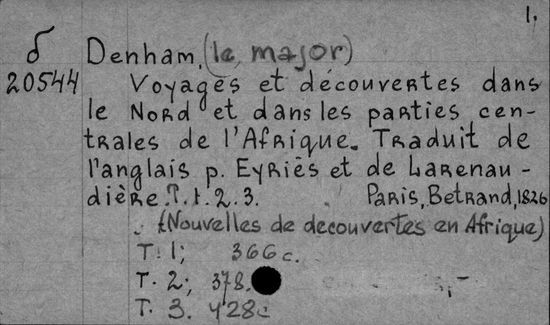 1.
б Denham, (le major)
20544 Voyages et découvertes dans
le Nord et dans les parties cen-
trales de l'Afrique. Traduit de
l'anglais p. Eyriès et de Larenau-
dière. T. 1. 2. 3. Paris, Betrand, 1826
(Nouvelles de decouvertes en Afrique)
T. 1; 366 c.
T. 2; 378.
T. 3. 428c